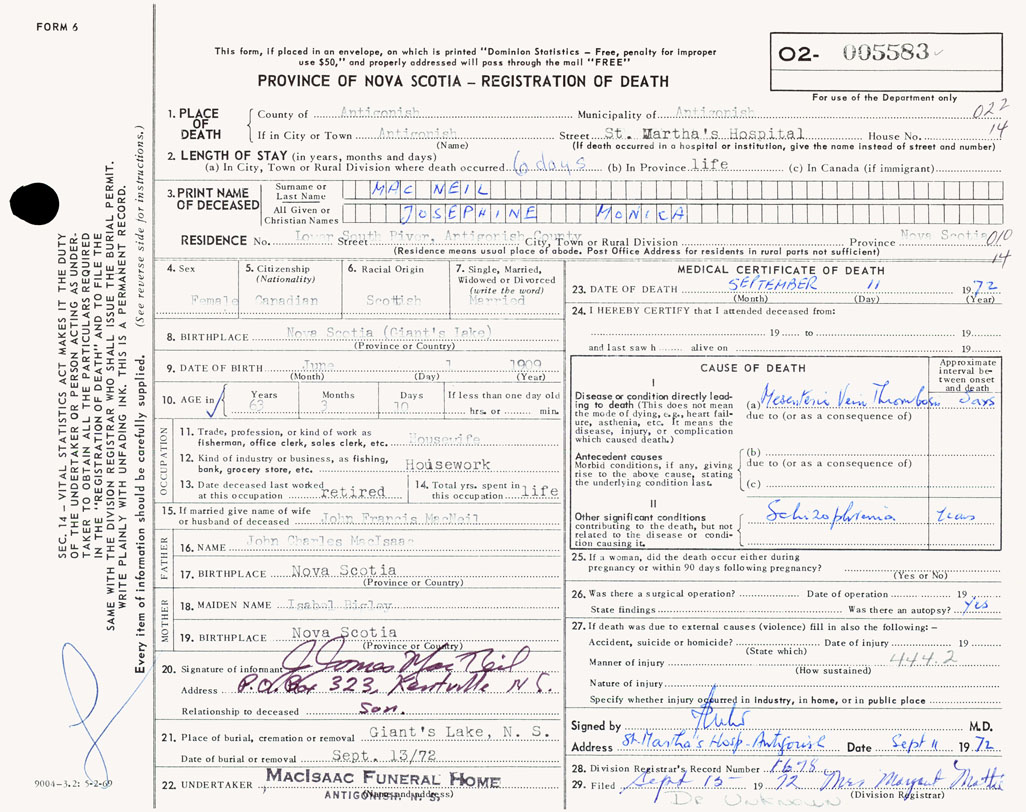 FORM 6
This form, if placed in an envelope, on which is printed "Dominion Statistics – Free, penalty for improper
use $50," and properly addressed will pass through the mail "FREE"
PROVINCE OF NOVA SCOTIA – REGISTRATION OF DEATH
02- 005583
For use of the Department only
022
14
1. PLACE OF DEATH
County of Antigonish Municipality of Antigonish
If in City or Town Antigonish Street St. Martha's Hospital House No.
(Name) (If death occurred in a hospital or institution, give the name instead of street and number)
2. LENGTH OF STAY (in years, months and days)
(a) In City, Town or Rural Division where death occurred 6 days (b) In Province life (c) In Canada (if immigrant)
3. PRINT NAME OF DECEASED
Surname or Last Name MAC NEIL
All Given or Christian Names JOSEPHINE MONICA
RESIDENCE No. Street Lower South River, Antigonish County City, Town or Rural Division Province Nova Scotia
010
14
(Residence means usual place of abode. Post Office Address for residents in rural parts not sufficient)
4. Sex
Female
5. Citizenship (Nationality)
Canadian
6. Racial Origin
Scottish
7. Single, Married, Widowed or Divorced (write the word)
Married
8. BIRTHPLACE Nova Scotia (Giant's Lake)
(Province or Country)
9. DATE OF BIRTH June 1 1909
(Month) (Day) (Year)
10. AGE in Years Months Days If less than one day old
63 3 10 hrs. or min.
OCCUPATION
11. Trade, profession, or kind of work as
fisherman, office clerk, sales clerk, etc. Housewife
12. Kind of industry or business, as fishing,
bank, grocery store, etc. Housework
13. Date deceased last worked
at this occupation retired
14. Total yrs. spent in
this occupation life
15. If married give name of wife
or husband of deceased John Francis MacNeil
FATHER
16. NAME John Charles MacIsaac
17. BIRTHPLACE Nova Scotia
(Province or Country)
MOTHER
18. MAIDEN NAME Isabel
19. BIRTHPLACE Nova Scotia
(Province or Country)
20. Signature of informant J. James MacNeil
Address P.O. Box 323, Kentville N S.
Relationship to deceased Son.
21. Place of burial, cremation or removal Giant's Lake, N. S.
Date of burial or removal Sept. 13/72
22. UNDERTAKER MacIsaac Funeral Home
ANTIGONISH, N. S.
(Name and address)
MEDICAL CERTIFICATE OF DEATH
23. DATE OF DEATH SEPTEMBER 11 1972
(Month) (Day) (Year)
24. I HEREBY CERTIFY that I attended deceased from:
19 to 19
and last saw h alive on 19
CAUSE OF DEATH
Approximate interval between onset and death
I
Disease or condition directly leading
to death (This does not mean
the mode of dying, e.g., heart failure,
asthenia, etc. It means the
disease, injury, or complication
which caused death.)
(a) Mesenteric Vein Thrombosis Days
due to (or as a consequence of)
Antecedent causes
Morbid conditions, if any, giving
rise to the above cause, stating
the underlying condition last.
(b)
due to (or as a consequence of)
(c)
II
Other significant conditions
contributing to the death, but not
related to the disease or condition
causing it.
Schizophrenia Years
25. If a woman, did the death occur either during
pregnancy or within 90 days following pregnancy?
(Yes or No)
26. Was there a surgical operation? Date of operation 19
State findings Was there an autopsy? Yes
27. If death was due to external causes (violence) fill in also the following: –
Accident, suicide or homicide? Date of injury 19
(State which)
Manner of injury 444.2
(How sustained)
Nature of injury
Specify whether injury occurred in industry, in home, or in public place
Signed by M.D.
Address St. Martha's Hosp - Antigonish Date Sept 11 1972
28. Division Registrar's Record Number
29. Filed Sept 15 – 1972 Mrs Margaret
(Division Registrar)
Dr UNKNOWN
SEC. 14 – VITAL STATISTICS ACT MAKES IT THE DUTY
OF THE UNDERTAKER OR PERSON ACTING AS UNDERTAKER
TO OBTAIN ALL THE PARTICULARS REQUIRED
IN THE "REGISTRATION OF DEATH" AND TO FILE THE
SAME WITH THE DIVISION REGISTRAR WHO SHALL ISSUE THE BURIAL PERMIT.
WRITE PLAINLY WITH UNFADING INK. THIS IS A PERMANENT RECORD.
Every item of information should be carefully supplied. (See reverse side for instructions.)
9004-3.2: 5-2-69